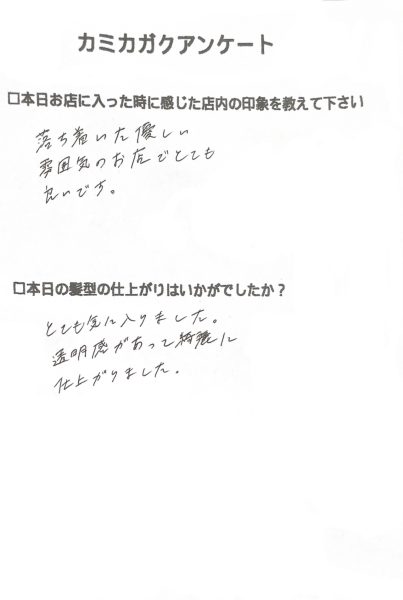 カミカガクアンケート
□本日お店に入った時に感じた店内の印象を教えて下さい
落ち着いた優しい
雰囲気のお店でとても
良いです。
□本日の髪型の仕上がりはいかがでしたか？
とても気に入りました。
透明感があって綺麗に
仕上がりました。